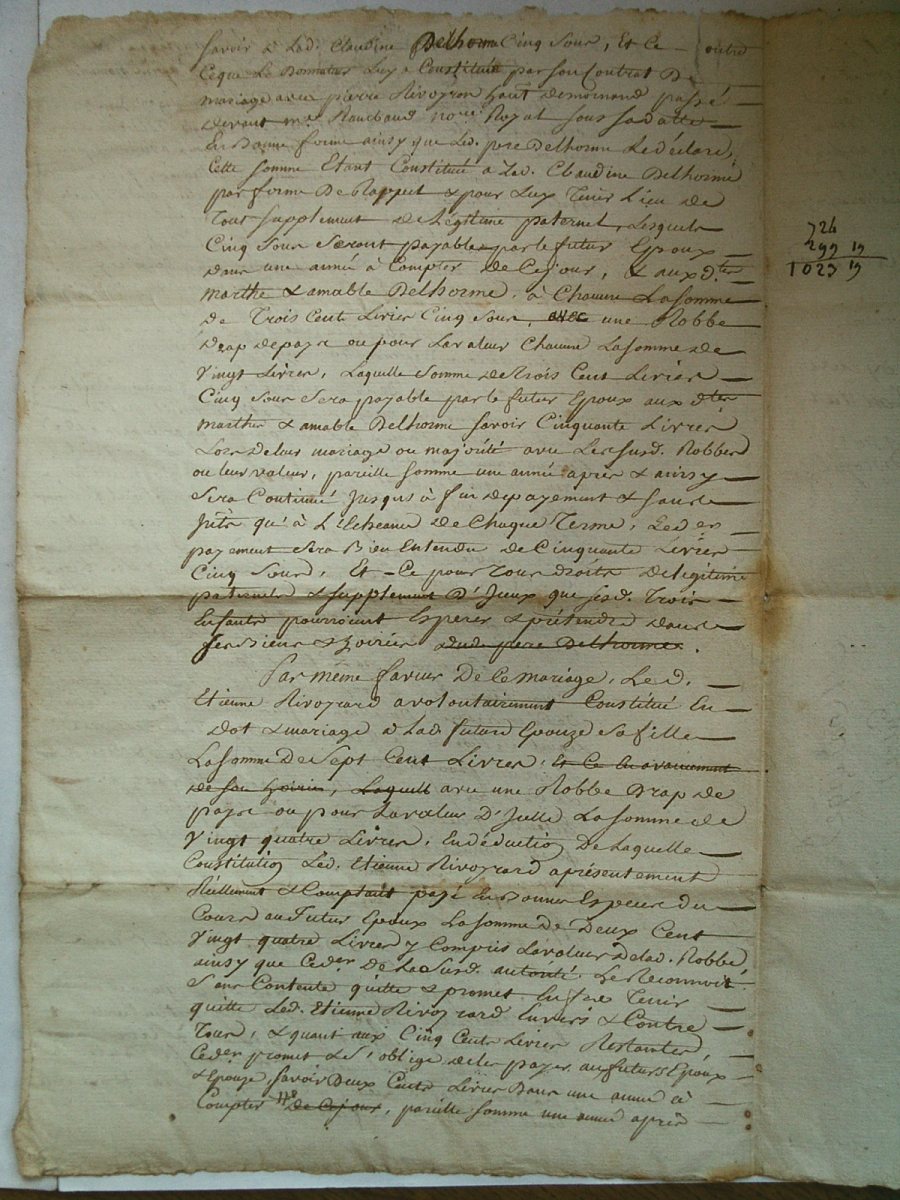 savoir a Lad. Claudine Delhorme Cinq Sous, Et Ce outre
Ceque Le Donnateur Luy a Constitué par son Contrat De
mariage avec pierre Rivoyron passé
devant me. Raubaud nore. Royal sous sa datte
En Bonne forme ainsy que Led. pere Delhorme Le déclare,
Cette somme Etant Constitué a Lad. Claudine Delhorme
par forme De Rappel & pour Luy Tenir Lieu de
Tout Supplement de Légitime paternel, Lesquels
Cinq Sous Seront payables par le futur Epoux
dans une année à Compter de Cejour, & aux dtes
marthe & amable Delhorme, à Chacune La somme
de Trois Cent Livres Cinq Sous, avec une Robbe
drap depays ou pour La valeur Chacune La somme de
Vingt Livres, Laquelle Somme de trois Cent Livres
Cinq Sous Sera payable par le futur Epoux aux dtes
marthe & amable Delhorme savoir Cinquante Livres
Lors de leur mariage ou majorité avec Les susd. Robbes
ou leur valeur, pareille somme une année après & ainsy
Sera Continué Jusqu'à fin de payement & sans
qu'à L'Echeance de Chaque Terme, Le der
payement Sera Bien Entendu de Cinquante Livres
Cinq Sous, Et Ce pour Tous droits de légitime
paternels & supplement D'Jceux que Trois
Enfants pourroient Esperer & prétendre dans
ses Biens & hoiries dud. pere Delhorme.
Par même faveur De Ce mariage, Led.
Etienne Rivoyrard a volontairement Constitué En
dot & mariage a Lad. future Epouze Sa fille
La somme De Sept Cent Livres, Et Ce En avancement
de son hoirie, Laquelle avec une Robbe Drap de
pays ou pour La valeur D'Jcelle La somme de
Vingt quatre Livres, En déduction De Laquelle
Constitution Led. Etienne Rivoyrard a présentement
Réellement & Comptant payé En Bonnes Especes du
Cours au Futur Epoux La somme De Deux Cent
Vingt quatre Livres y Compris La valeur de lad. Robbe
ainsy que Ceder de La Susd. autorité Le Reconnoit
S'en Contente quitte & promet En faire Tenir
quitte Led. Etienne Rivoyrard Envers & Contre
Tous, & quant aux Cinq Cents Livres Restantes,
Ceder promet & S'oblige de les payer, au futurs Epoux
& Epouze savoir Deux Cents Livres Dans une année à
Compter de Cejour, pareille somme une année après
724
299 19
1023 19